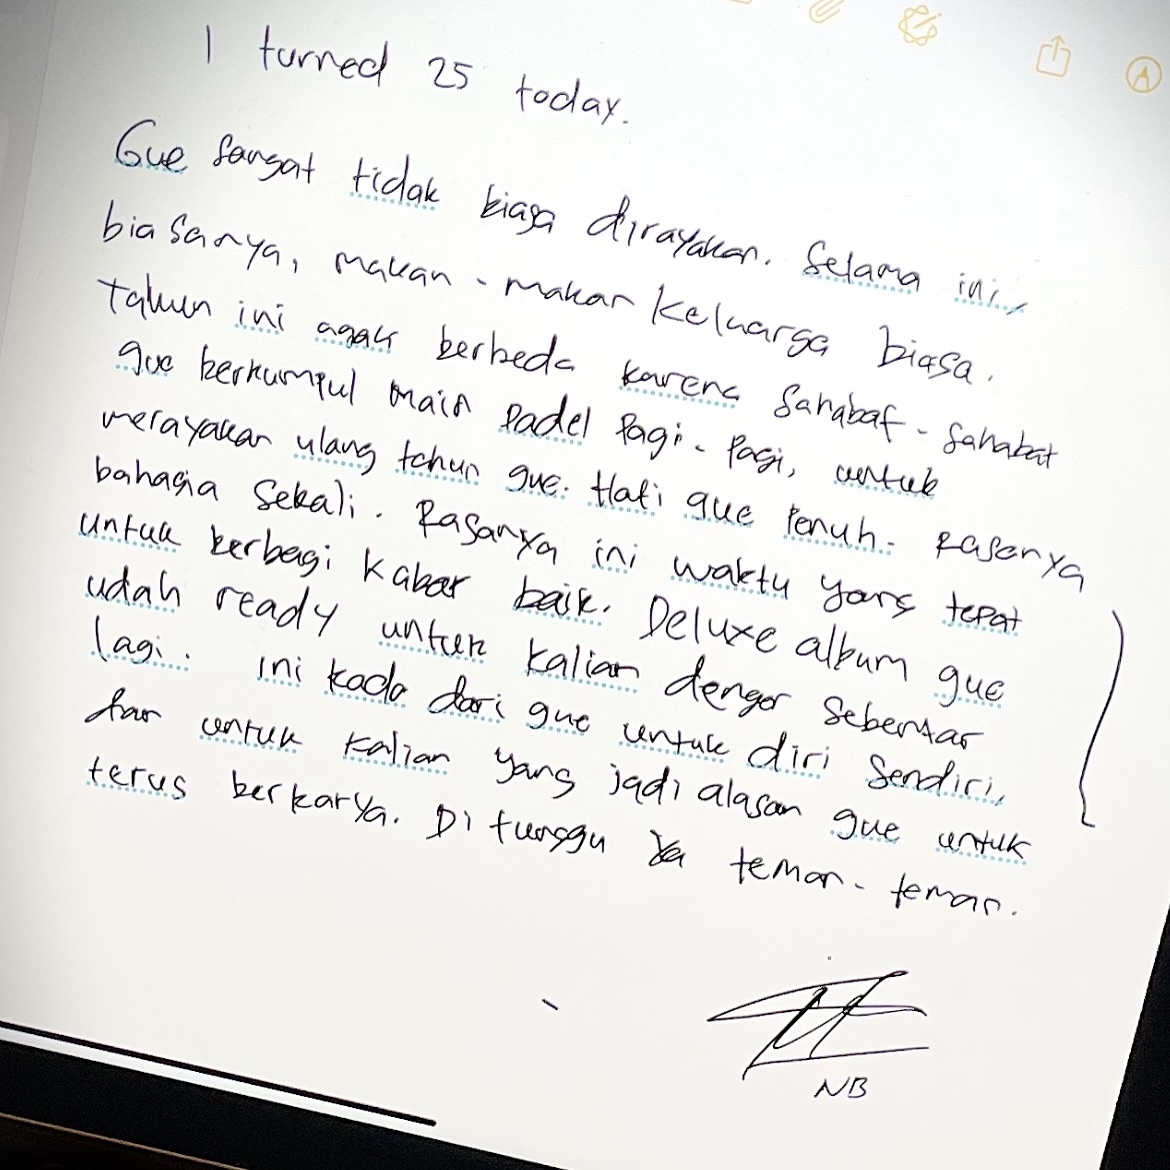 I turned 25 today.
Gue sangat tidak biasa dirayakan. Selama ini,
biasanya, makan-makan keluarga biasa.
Tahun ini agak berbeda karena sahabat-sahabat
gue berkumpul main padel pagi-pagi, untuk
merayakan ulang tahun gue. Hati gue penuh. Rasanya
bahagia sekali. Rasanya ini waktu yang tepat
untuk berbagi kabar baik. Deluxe album gue
udah ready untuk kalian denger sebentar
lagi. Ini kado dari gue untuk diri sendiri,
dan untuk kalian yang jadi alasan gue untuk
terus berkarya. Ditunggu ya teman-teman.
NB